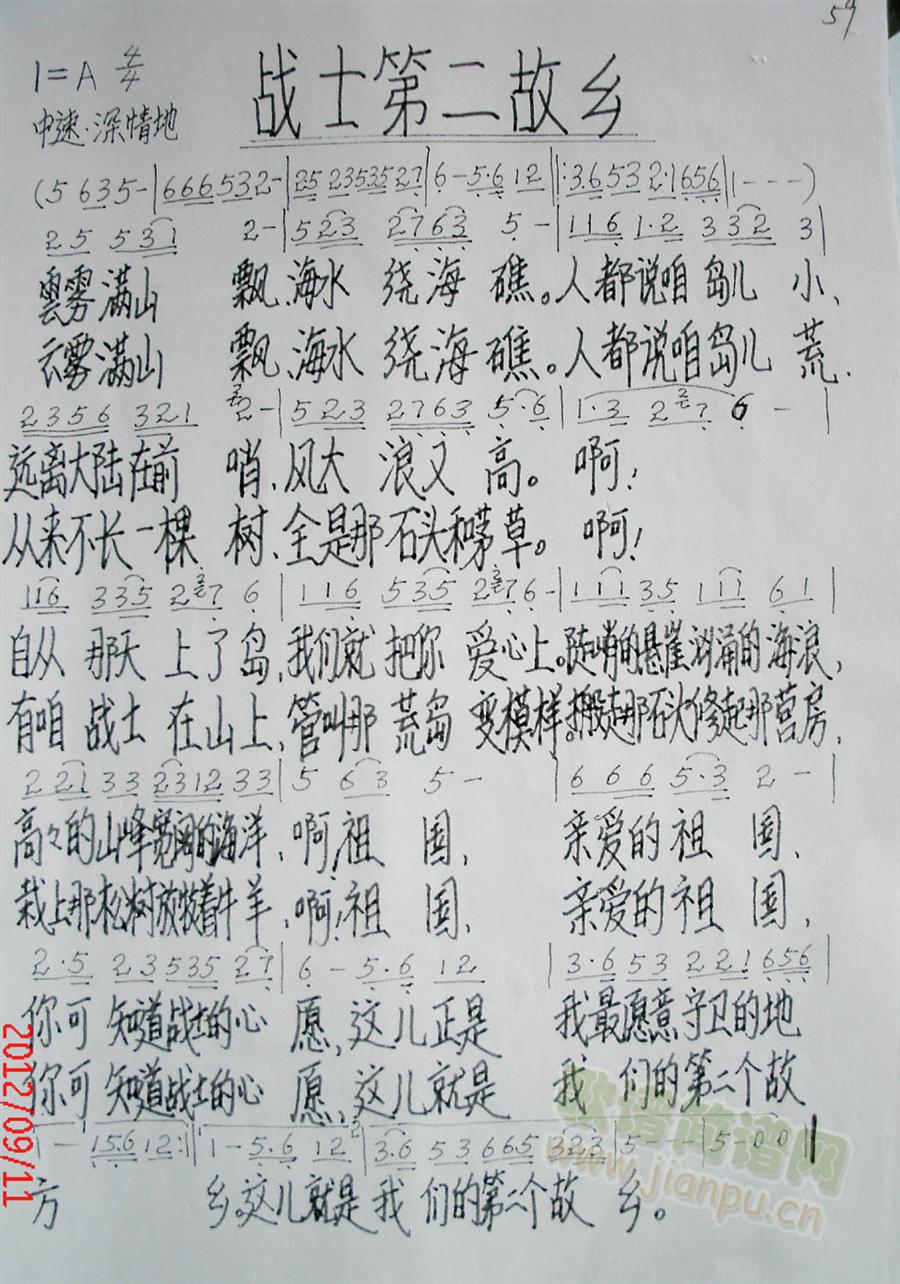 59
1=A 4/4
战士第二故乡
中速·深情地
(5 635-|666532-|25 23535 27|6-5·612‖:3·6532·1656|1---)
25 531 2-|523 2763 5-|116 1·2 332 3|
雲雾满山 飘、海水 绕海 礁。人都说咱岛儿 小、
云雾满山 飘、海水 绕海礁。人都说咱岛儿 荒、
2356 321 2-|523 2763 5·6|1·3 27 6-|
远离大陆在前 哨、风大 浪又 高。啊!
从来不长一棵 树、全是那石头和茅草。啊!
116 335 27 6|116 535 276-|111 35 111 61|
自从 那天 上了岛、我们就 把你 爱心上。陡峭的悬崖汹涌的海浪、
有咱 战士 在山上、管叫那 荒岛 变模样。搬起那石头修起那营房、
221 33 2312 33|5 63 5-|666 5·3 2-|
高々的山峰宽阔的海洋、啊!祖 国、亲爱的祖 国、
栽上那松树放牧着牛羊、啊!祖 国、亲爱的祖 国、
2·5 23535 27|6-5·6 12|3·6 53 221 656|
你可 知道战士的心 愿、这儿正是 我最愿意守卫的地
你可 知道战士的心 愿、这儿就是 我 们的第二个故
1- 15·6 12:‖1-5·6 12|3·6 53665 323|5--|5-00‖
方 乡。这儿就是我 们的第二个故 乡。
2012/09/11
歌谱简谱网
www.jianpu.cn